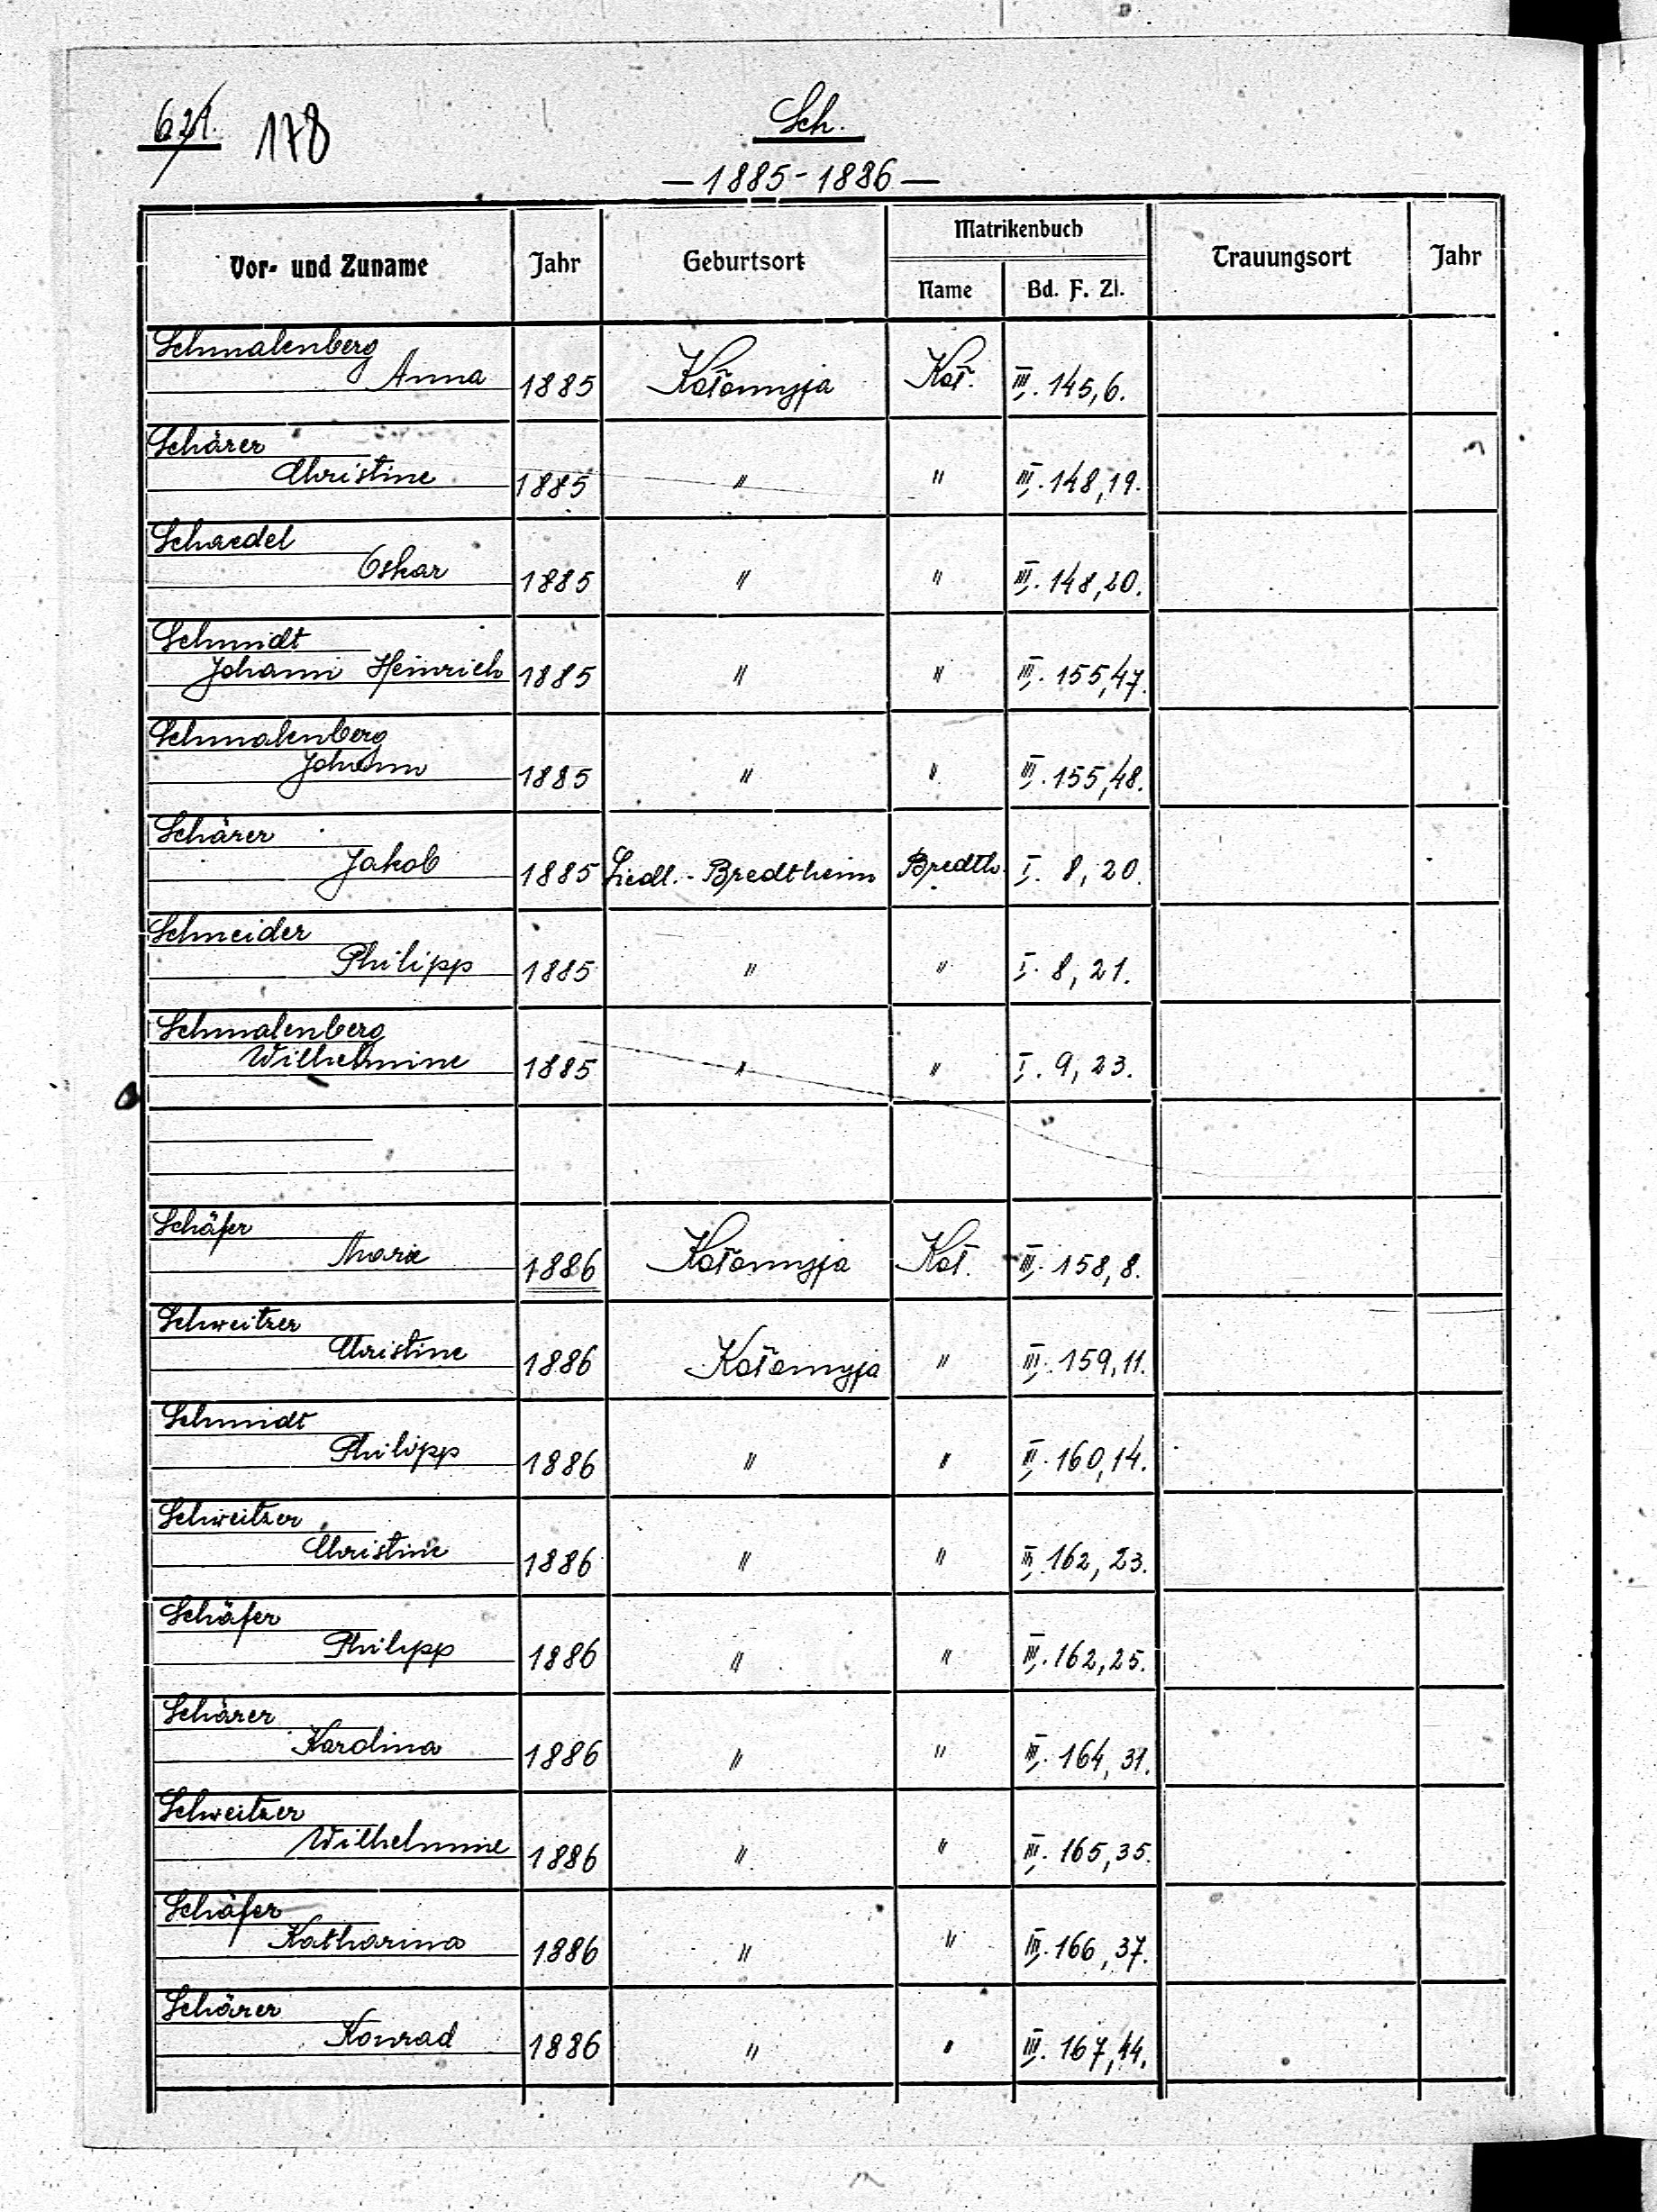 671. 178
Sch.
— 1885-1886 —
Vor- und Zuname Jahr Geburtsort Matrikenbuch Trauungsort Jahr
Name Bd. F. Zl.
Schmalenberg
Anna 1885 Kołomyja Koł. III. 145, 6.
Schärer
Christine 1885 " " III. 148, 19.
Schaedel
Oskar 1885 " " III. 148, 20.
Schmidt
Johann Heinrich 1885 " " III. 155, 47.
Schmalenberg
Johann 1885 " " III. 155, 48.
Schärer
Jakob 1885 Siedl.-Bredtheim Bredth. I. 8, 20.
Schneider
Philipp 1885 " " I. 8, 21.
Schmalenberg
Wilhelmine 1885 " " I. 9, 23.
Schäfer
Marie 1886 Kołomyja Koł. III. 158, 8.
Schweitzer
Christine 1886 Kołomyja " III. 159, 11.
Schmidt
Philipp 1886 " " III. 160, 14.
Schweitzer
Christine 1886 " " III. 162, 23.
Schäfer
Philipp 1886 " " III. 162, 25.
Schärer
Karolina 1886 " " III. 164, 31.
Schweitzer
Wilhelmine 1886 " " III. 165, 35.
Schäfer
Katharina 1886 " " III. 166, 37.
Schärer
Konrad 1886 " " III. 167, 44.